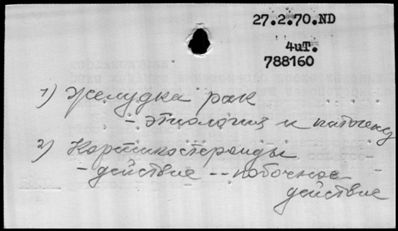 27.2.70.ND
4иТ.
788160
1) Желудка рак
- этиология и патогенез
2) Кортикостероиды
- действие -- побочное
действие